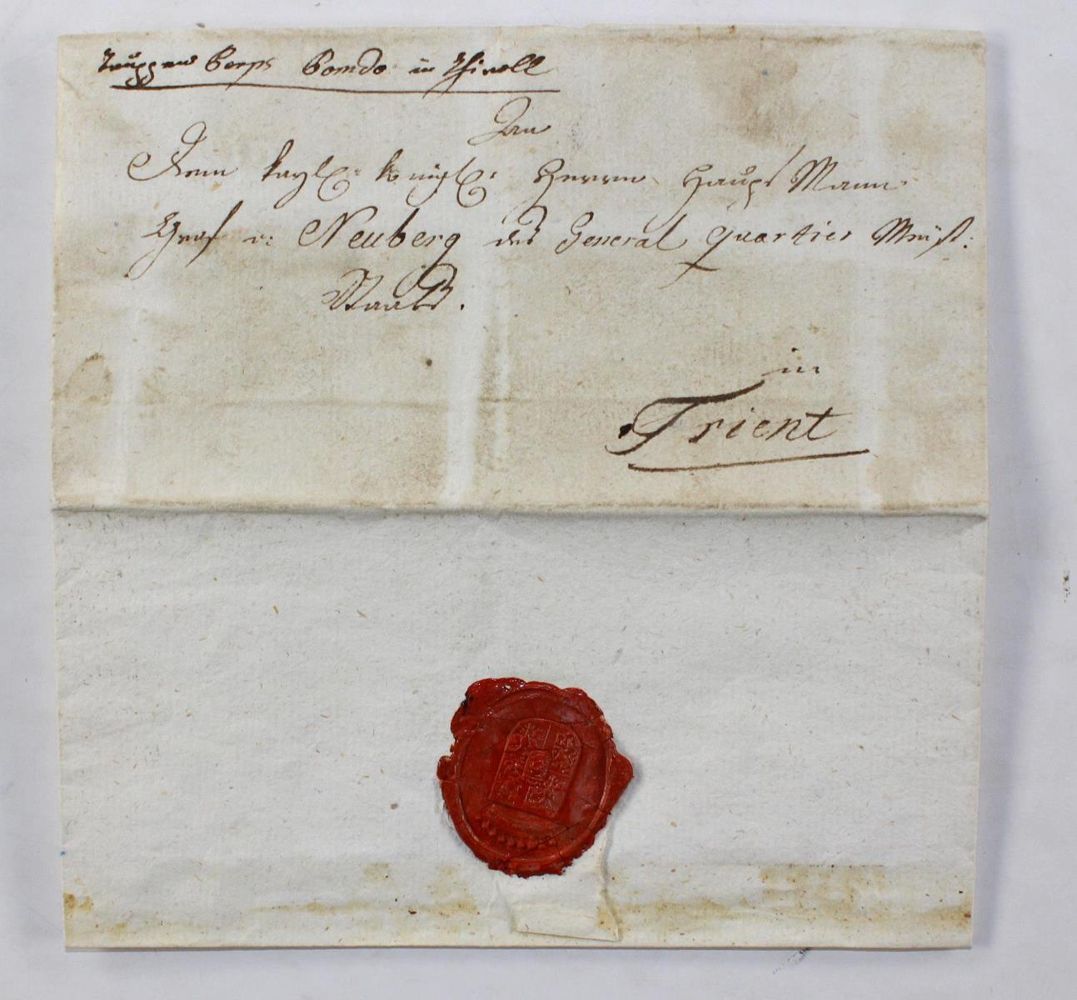 Truppen Corps Comdo in Thiroll
An
Dem kayl: königl: Herrn Haupt Mann
Graf v: Neuberg des General Quartier Meist:
Staabs.
in
Trient